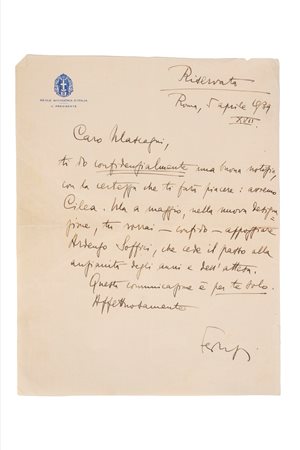 REALE ACCADEMIA D'ITALIA
IL PRESIDENTE
Riservata
Roma, 5 aprile 1939
XVII
Caro Mascagni,
ti do confidenzialmente una buona notizia,
con la certezza che ti farà piacere: avremo
Cilea. Ma a maggio, nella nuova designa-
zione, tu vorrai – confido – appoggiare
Ardengo Soffici, che cede il passo alla
anzianità degli anni e dell'attesa.
Questa comunicazione è per te solo.
Affettuosamente